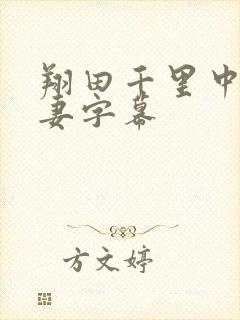 翔田千里中
妻字幕
方文婷